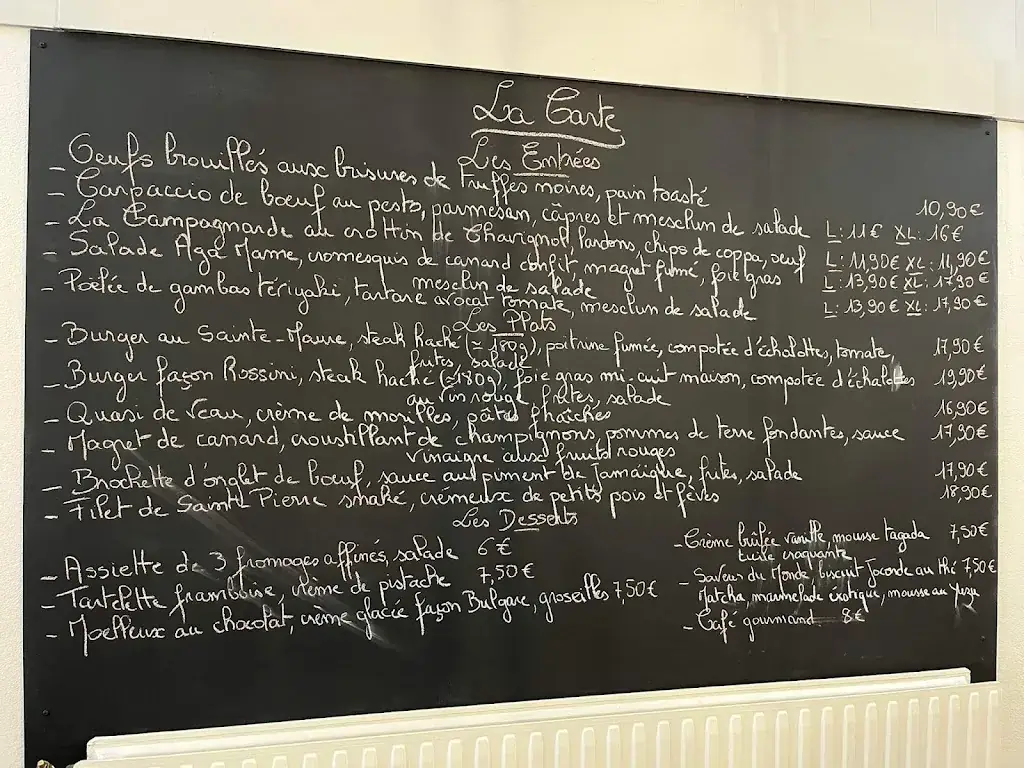 La Carte
Les Entrées
- Oeufs brouillés aux brisures de truffes noires, pain toasté 10,90€
- Carpaccio de boeuf au pesto, parmesan, câpres et mesclun de salade L: 11€ XL: 16€
- La Campagnarde au crottin de Chavignol, lardons, chips de coppa, oeuf L: 11,90€ XL: 11,90€
- Salade Aga Mame, cromesquis de canard confit, magret fumé, foie gras L: 13,90€ XL: 17,90€
mesclun de salade
- Poêlée de gambas tériyaki, tartare avocat tomate, mesclun de salade L: 13,90€ XL: 17,90€
Les Plats
- Burger au Sainte-Maure, steak haché (≃ 180g), poitrine fumée, compotée d'échalottes, tomate, 17,90€
frites, salade
- Burger façon Rossini, steak haché (≃180g), foie gras mi-cuit maison, compotée d'échalottes 19,90€
au vin rouge, frites, salade
- Quasi de Veau, crème de morilles, pâtes fraîches 16,90€
- Magret de canard, croustillant de champignons, pommes de terre fondantes, sauce 17,90€
vinaigre aux fruits rouges
- Brochette d'onglet de boeuf, sauce au piment de Jamaïque, frites, salade 17,90€
- Filet de Saint Pierre snaké, crémeux de petits pois et fèves 18,90€
Les Desserts
- Assiette de 3 fromages affinés, salade 6€
- Tartelette framboise, crème de pistache 7,50€
- Moelleux au chocolat, crème glacée façon Bulgare, groseilles 7,50€
- Crème brûlée vanille, mousse tagada 7,50€
tuile croquante
- Saveur du Monde, biscuit Joconde au thé 7,50€
Matcha, marmelade exotique, mousse au Yuzu
- Café gourmand 8€